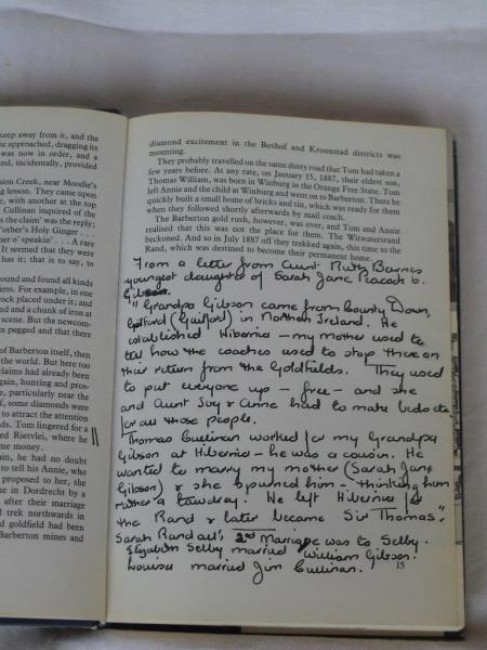 keep away from it, and the
he approached, dragging its
was now in order, and a
nd, incidentally, provided
sion Creek, near Moodie's
ng lesson. They came upon
, with another at the top
Cullinan inquired of the
s claim' was the reply;
other's Holy Ginger . . .
er o' speakin' . . . A rare
It seemed that they were
has it; that is to say, to
ound and found all kinds
ims. For example, in one
rock placed under it; and
and a chunk of iron at
scene. But the newcom-
n pegged and that there
of Barberton itself, then
the world. But here too
claims had already been
gain, hunting and pros-
e, particularly near the
d, some diamonds were
to attract the attention
ds. Tom lingered for a
ed Rietvlei, where he
me money.
in, he had no doubt
to tell his Annie, who
proposed to her, she
ne in Dordrecht by a
after their marriage
d trek northwards in
d goldfield had been
Barberton mines and
diamond excitement in the Boshof and Kroonstad districts was
mounting.
They probably travelled on the same dusty road that Tom had taken a
few years before. At any rate, on January 15, 1887, their oldest son,
Thomas William, was born in Winburg in the Orange Free State. Tom
left Annie and the child at Winburg and went on to Barberton. There he
quickly built a small home of bricks and tin, which was ready for them
when they followed shortly afterwards by mail coach.
The Barberton gold rush, however, was over, and Tom and Annie
realised that this was not the place for them. The Witwatersrand
beckoned. And so in July 1887 off they trekked again, this time to the
Rand, which was destined to become their permanent home.
From a letter from Aunt Ruth Barnes
youngest daughter of Sarah Jane Peacock b.
Gibson.
"Grandpa Gibson came from County Down,
(Guilford) in Northern Ireland. He
established Hibernia - my mother used to
tell how the coaches used to stop there on
their return from the Goldfields. They used
to put everyone up - free - and she
and Aunt Soy & Anne had to make beds etc
for all those people.
Thomas Cullinan worked for my Grandpa
Gibson at Hibernia - he was a cousin. He
wanted to marry my mother (Sarah Jane
Gibson) & she spurned him - thinking him
rather a tawdray. He left Hibernia for
the Rand & later became Sir Thomas".
Sarah Randall's 2nd Marriage was to Selby.
Elizabeth Selby married William Gibson.
Louisa married Jim Cullinan.
15